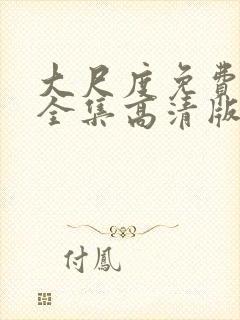 大尺度免费
全集高清版
付鳳